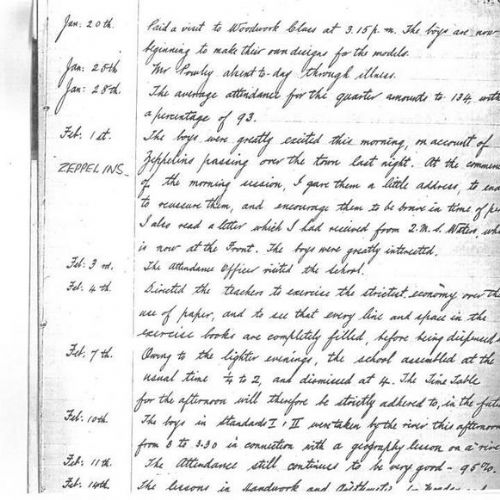 Jan: 20th Paid a visit to Woodwork Class at 3.15 p.m. The boys are now
beginning to make their own designs for the models.
Jan: 25th Mr Powley absent to-day through illness.
Jan: 28th. The average attendance for the quarter amounts to 134, with
a percentage of 93.
Feb: 1st. The boys were greatly excited this morning, on account of
ZEPPELINS Zeppelins passing over the town last night. At the commence
of the morning session, I gave them a little address, to
to reassure them, and encourage them to be brave in time of
I also read a letter which I had received from 2.M.S. Waters,
is now at the Front. The boys were greatly interested.
Feb: 3rd. The Attendance Officer visited the school.
Feb: 4th Directed the teachers to exercise the strictest economy over the
use of paper, and to see that every line and space in the
exercise books are completely filled, before being
Feb: 7th. Owing to the lighter evenings, the school assembled at the
usual time ¼ to 2, and dismissed at 4. The Time Table
for the afternoon will therefore be strictly adhered to, in the
Feb: 10th. The boys in standards I, II were taken by the river this afternoon
from 3 to 3.30 in connection with a geography lesson on a "river
Feb: 11th. The Attendance still continues to be very good - 95%.
Feb: 14th The lessons in Handwork and Arithmetic in